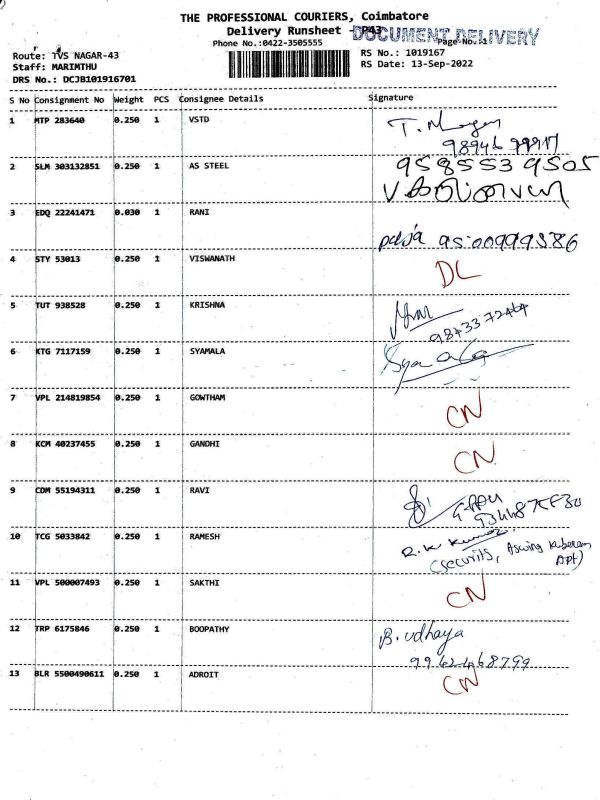 THE PROFESSIONAL COURIERS, Coimbatore
Delivery Runsheet - P43
DOCUMENT DELIVERY
Phone No.:0422-3505555 Page No.:1
Route: TVS NAGAR-43 RS No.: 1019167
Staff: MARIMTHU RS Date: 13-Sep-2022
DRS No.: DCJB101916701
S No Consignment No Weight PCS Consignee Details Signature
1 MTP 283640 0.250 1 VSTD
2 SLM 303132851 0.250 1 AS STEEL 9585539505
3 EDQ 22241471 0.030 1 RANI
9500999586
4 STY 53013 0.250 1 VISWANATH DL
5 TUT 938528 0.250 1 KRISHNA
9843372464
6 KTG 7117159 0.250 1 SYAMALA Syamala
7 VPL 214819854 0.250 1 GOWTHAM CN
8 KCM 40237455 0.250 1 GANDHI CN
9 CDM 55194311 0.250 1 RAVI
10 TCG 5033842 0.250 1 RAMESH R.K. Kumar
(Security, Aswing Kuberan
Apt)
11 VPL 500007493 0.250 1 SAKTHI CN
12 TRP 6175846 0.250 1 BOOPATHY B. udhaya
9942468799
13 BLR 5500490611 0.250 1 ADROIT CN